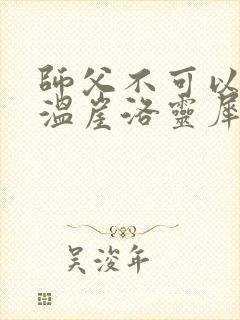 師父不可以
溫崖洛靈犀
吴浚年